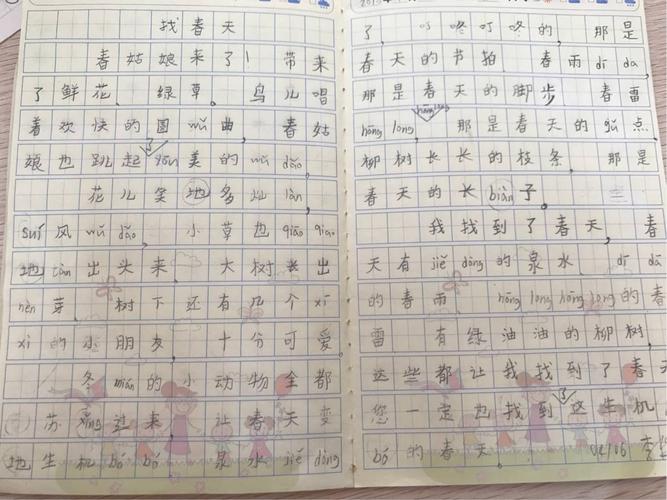 找春天
春姑娘来了！带来
了鲜花、绿草。鸟儿唱
着欢快的圆wǔ曲，春姑
娘也跳起了yōu美的wǔ dǎo。
花儿笑地多càn làn，
suí风wǔ dǎo，小草也qiāo qiao
地tàn出头来，大树长出
nèn芽，树下还有几个xī
xī的小朋友，十分可爱。
冬mián的小动物全都
苏xǐng过来，让春天变
地生机bó bó，泉水jiē dōng
了，叮咚叮咚的，那是
春天的节拍，春雨dī da，
那是春天的脚步，春雷
hōng long
hōng long，那是春天的gǔ点，
柳树长长的枝条，那是
春天的长biàn子。
我找到了春天，春
天有jiě dòng的泉水，dī dā
的春雨，hōng long hōng long的春
雷，有绿油油的柳树，
这些都让我找到了春天
您一定也找到了这生机
bó的春天。04/06